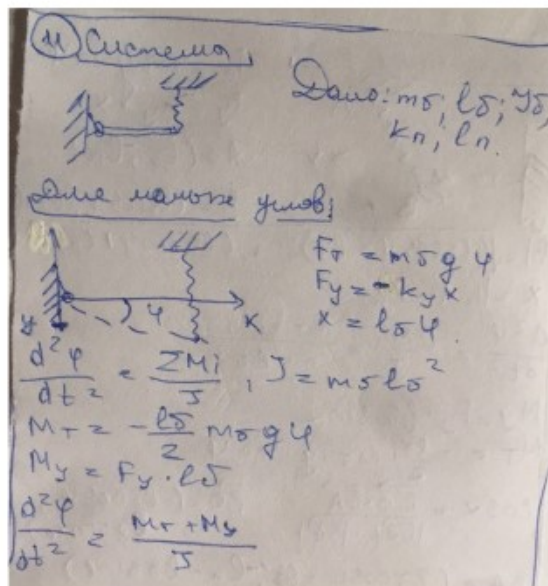 11 Система
Дано: mб; lб; Jб;
kп; lп.
Для малых углов:
Fт = mбgφ
Fy = -kyx
x = lбφ
y φ x
d²φ/dt² = ΣMi/J, J = mбlб²
Mт = -lб/2 mбgφ
My = Fy·lб
d²φ/dt² = Mт+My/J